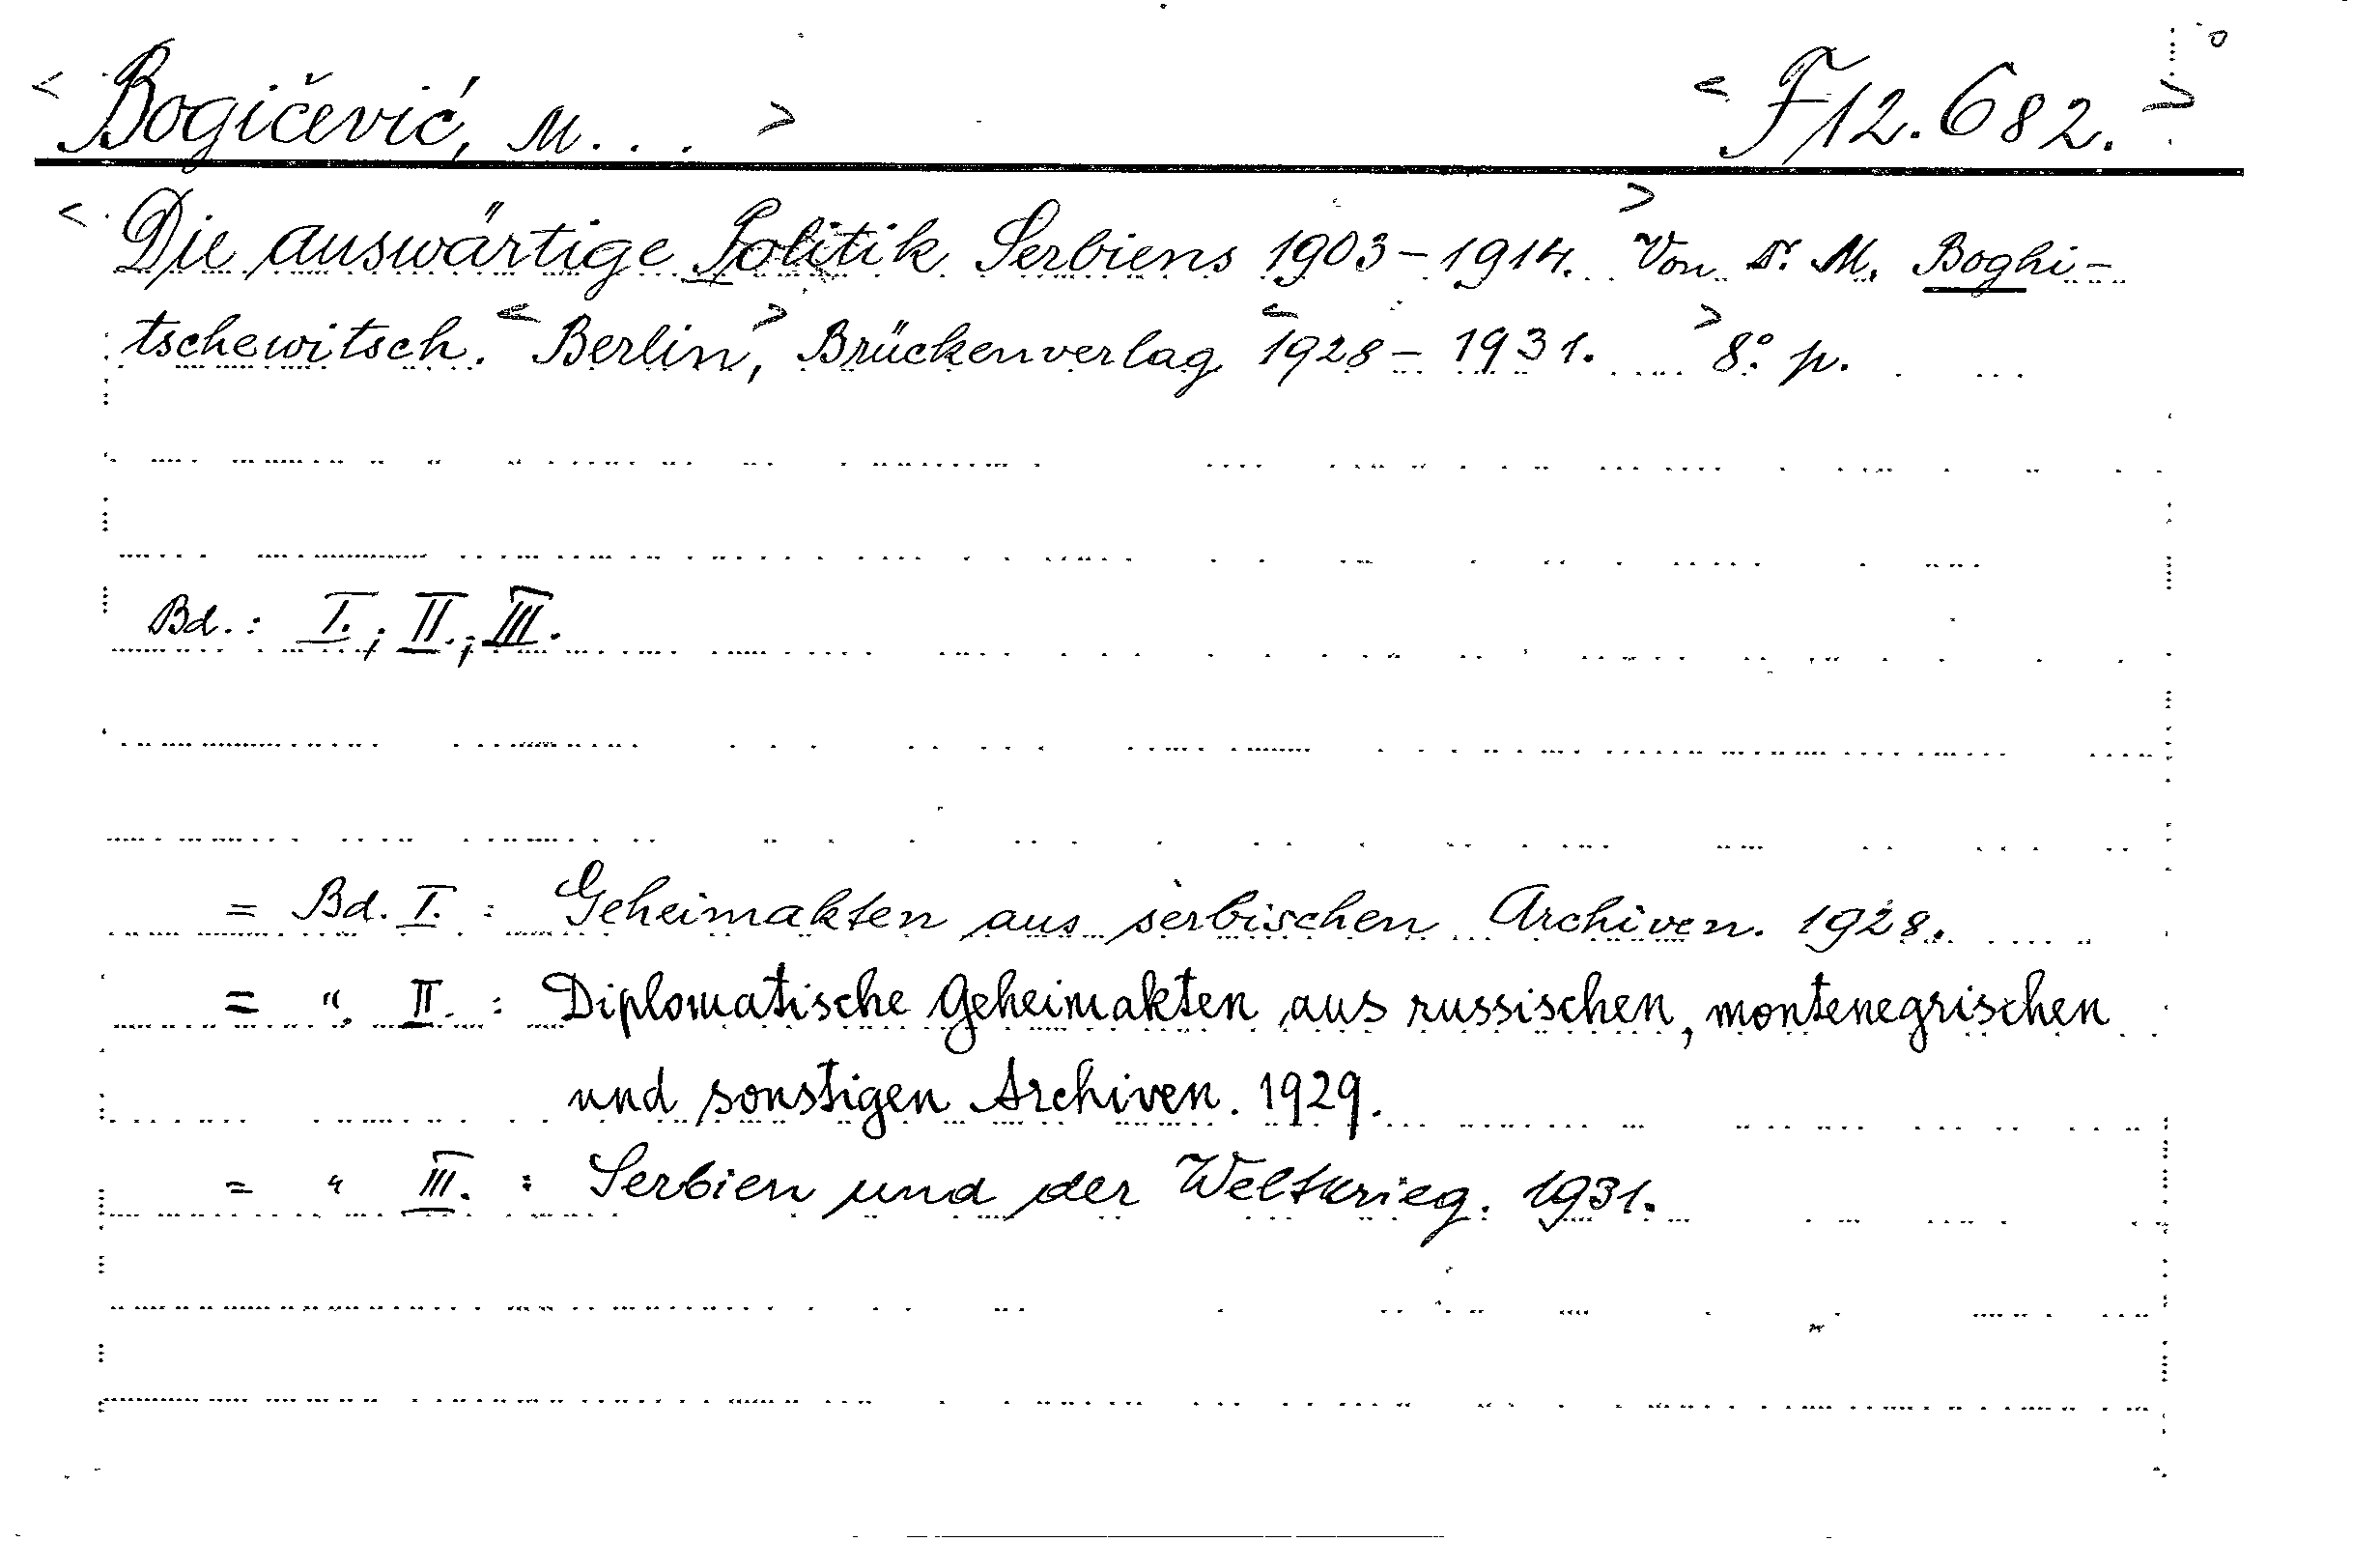 < Bogičević, M. . . > < F 12.682. >
< Die auswärtige Politik Serbiens 1903–1914. > Von Dr. M. Boghi-
tschewitsch. < Berlin >, Brückenverlag < 1928 – 1931. > 8° p.
Bd.: I.; II.; III.
= Bd. I. : Geheimakten aus serbischen Archiven. 1928.
= ". II. : Diplomatische Geheimakten aus russischen, montenegrischen
und sonstigen Archiven. 1929.
= " III. : Serbien und der Weltkrieg. 1931.